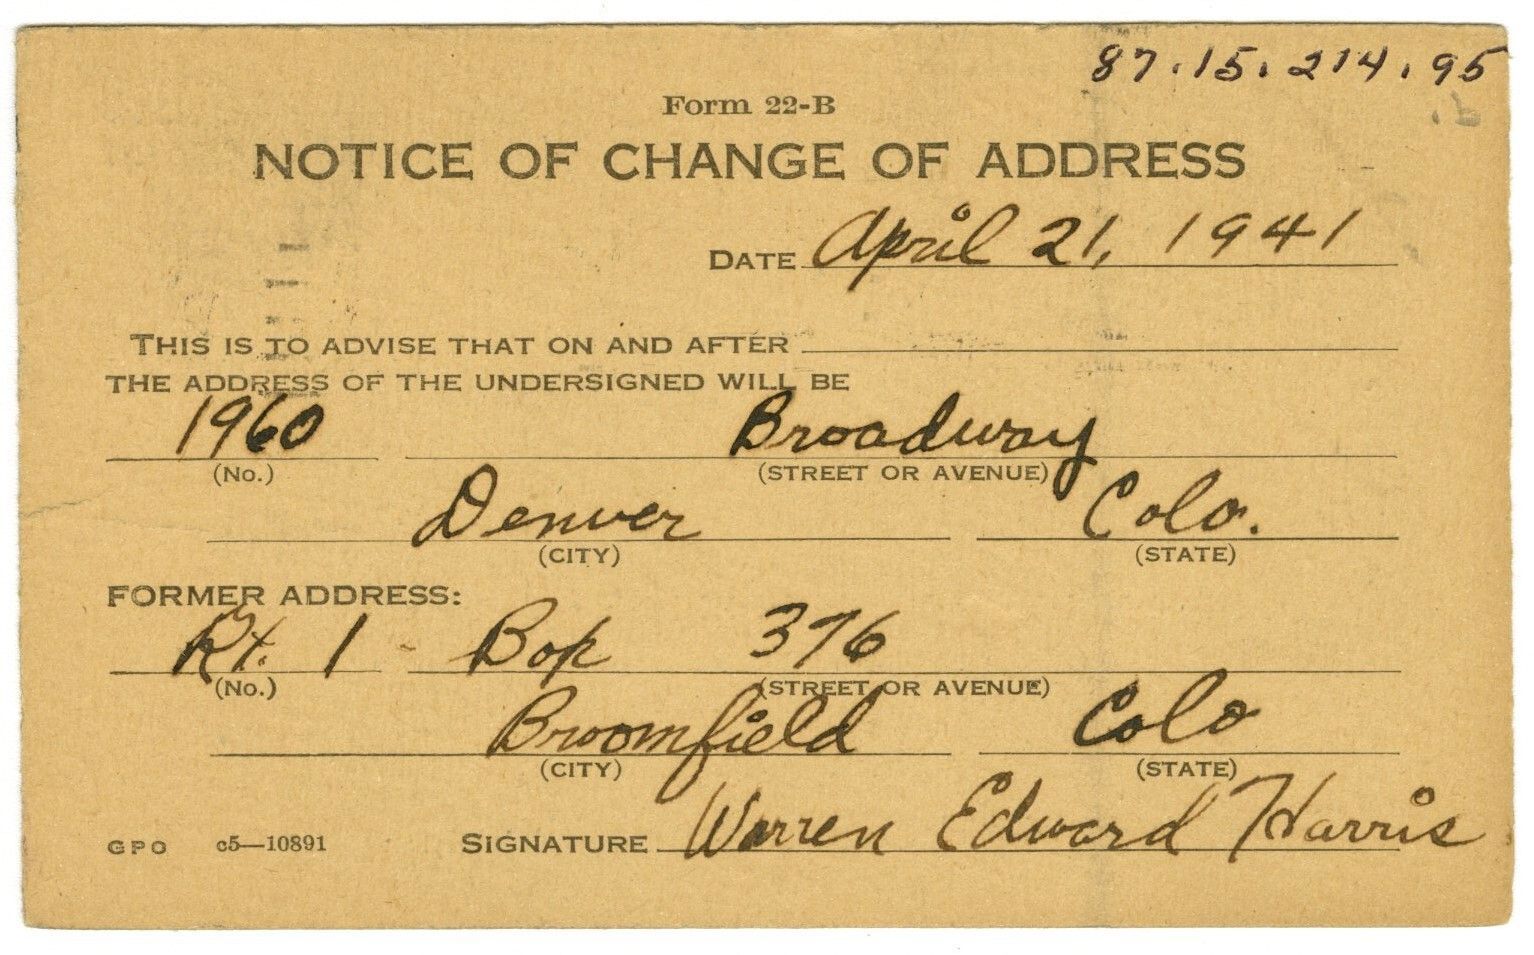 87.15.214.95
Form 22-B
NOTICE OF CHANGE OF ADDRESS
DATE April 21, 1941
THIS IS TO ADVISE THAT ON AND AFTER
THE ADDRESS OF THE UNDERSIGNED WILL BE
1960 Broadway
(No.) (STREET OR AVENUE)
Denver Colo.
(CITY) (STATE)
FORMER ADDRESS:
Rt. 1 - Box 376
(No.) (STREET OR AVENUE)
Broomfield Colo
(CITY) (STATE)
GPO c5—10891 SIGNATURE Warren Edward Harris